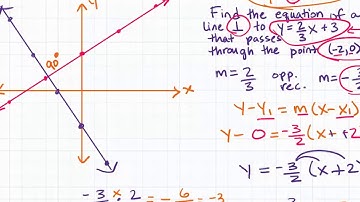 Y
Find the equation of a
line ⊥ to y = 2/3 x + 3
that passes
through the point (-2,0)
90°
m = 2/3 opp. rec. m = -3
x
Y - Y₁ = m(x - x₁)
Y - 0 = -3/2 (x + +2
Y = -3/2 (x + 2
-3/2 × 2 = -6/2 = -3